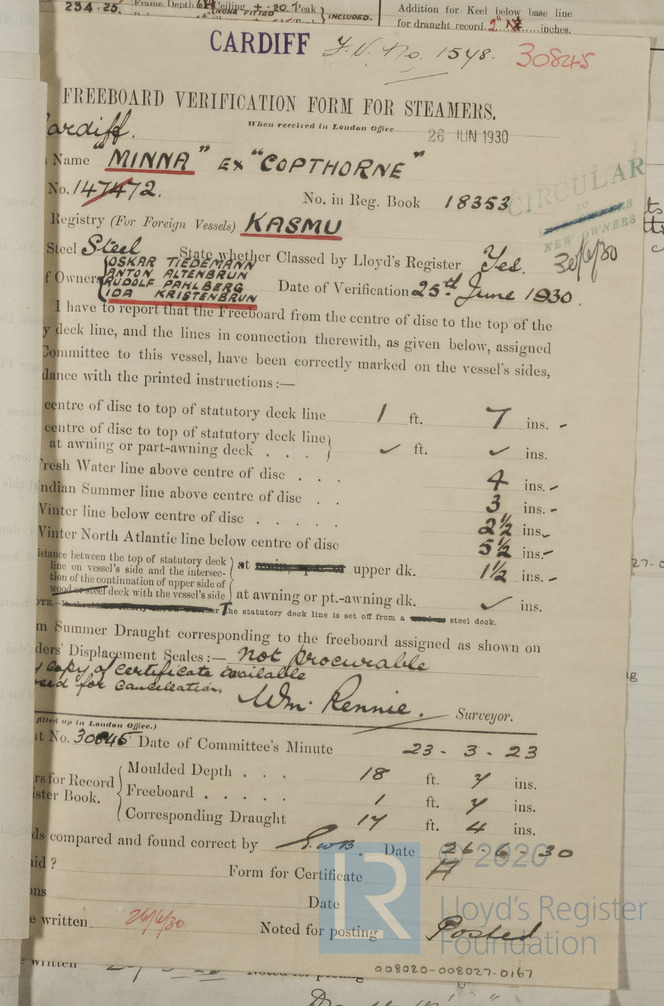 234.25. Frame Depth Ceiling +.20 Peak
NONE FITTED INCLUDED.
Addition for Keel below base line
for draught record 2" inches.
CARDIFF F.V. No. 1548. 30845
FREEBOARD VERIFICATION FORM FOR STEAMERS.
When received in London Office 26 JUN 1930
ardiff.
Name "MINNA" EX "COPTHORNE"
No. 147472. No. in Reg. Book 18353
CIRCULAR
TO
NEW OWNERS
30/6/30
Registry (For Foreign Vessels) KASMU
Steel Steel State whether Classed by Lloyd's Register Yes.
f Owners OSKAR TIEDEMANN
ANTON ALTENBRUN
RUDOLF PAHLBERG
IDA KRISTENBRUN
Date of Verification 25th June 1930.
I have to report that the Freeboard from the centre of disc to the top of the
y deck line, and the lines in connection therewith, as given below, assigned
Committee to this vessel, have been correctly marked on the vessel's sides,
dance with the printed instructions:—
centre of disc to top of statutory deck line 1 ft. 7 ins. -
centre of disc to top of statutory deck line
at awning or part-awning deck . . . ✓ ft. ✓ ins.
Fresh Water line above centre of disc . . . 4 ins. -
ndian Summer line above centre of disc . . 3 ins. -
Winter line below centre of disc . . . . . 2½ ins. -
Winter North Atlantic line below centre of disc 5½ ins. -
istance between the top of statutory deck
line on vessel's side and the intersec-
tion of the continuation of upper side of
wood or steel deck with the vessel's side
at upper dk. 1½ ins. -
at awning or pt.-awning dk. ✓ ins.
The statutory deck line is set off from a steel deck.
m Summer Draught corresponding to the freeboard assigned as shown on
ders' Displacement Scales:— not procurable
y copy of certificate available
sed for cancellation.
Wm. Rennie. Surveyor.
filled up in London Office.)
t No. 30845 Date of Committee's Minute 23-3-23
rs for Record
ister Book.
Moulded Depth . . . 18 ft. 7 ins.
Freeboard . . . . . 1 ft. 7 ins.
Corresponding Draught 17 ft. 4 ins.
ds compared and found correct by Date 26-6-30
aid ? Form for Certificate A
ons Date
e written 26/6/30 Noted for posting Posted
© 2020
LR
Lloyd's Register
Foundation
written Noted for posting
008020-008027-0167